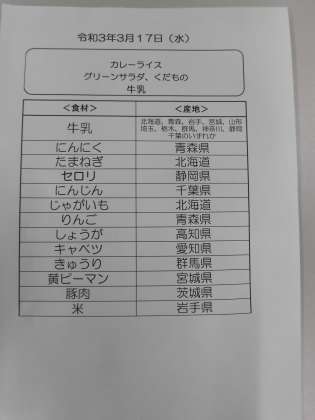 令和3年3月17日（水）
カレーライス
グリーンサラダ、くだもの
牛乳
＜食材＞ ＜産地＞
牛乳 北海道、青森、岩手、宮城、山形
埼玉、栃木、群馬、神奈川、静岡
千葉のいずれか
にんにく 青森県
たまねぎ 北海道
セロリ 静岡県
にんじん 千葉県
じゃがいも 北海道
りんご 青森県
しょうが 高知県
キャベツ 愛知県
きゅうり 群馬県
黄ピーマン 宮城県
豚肉 茨城県
米 岩手県